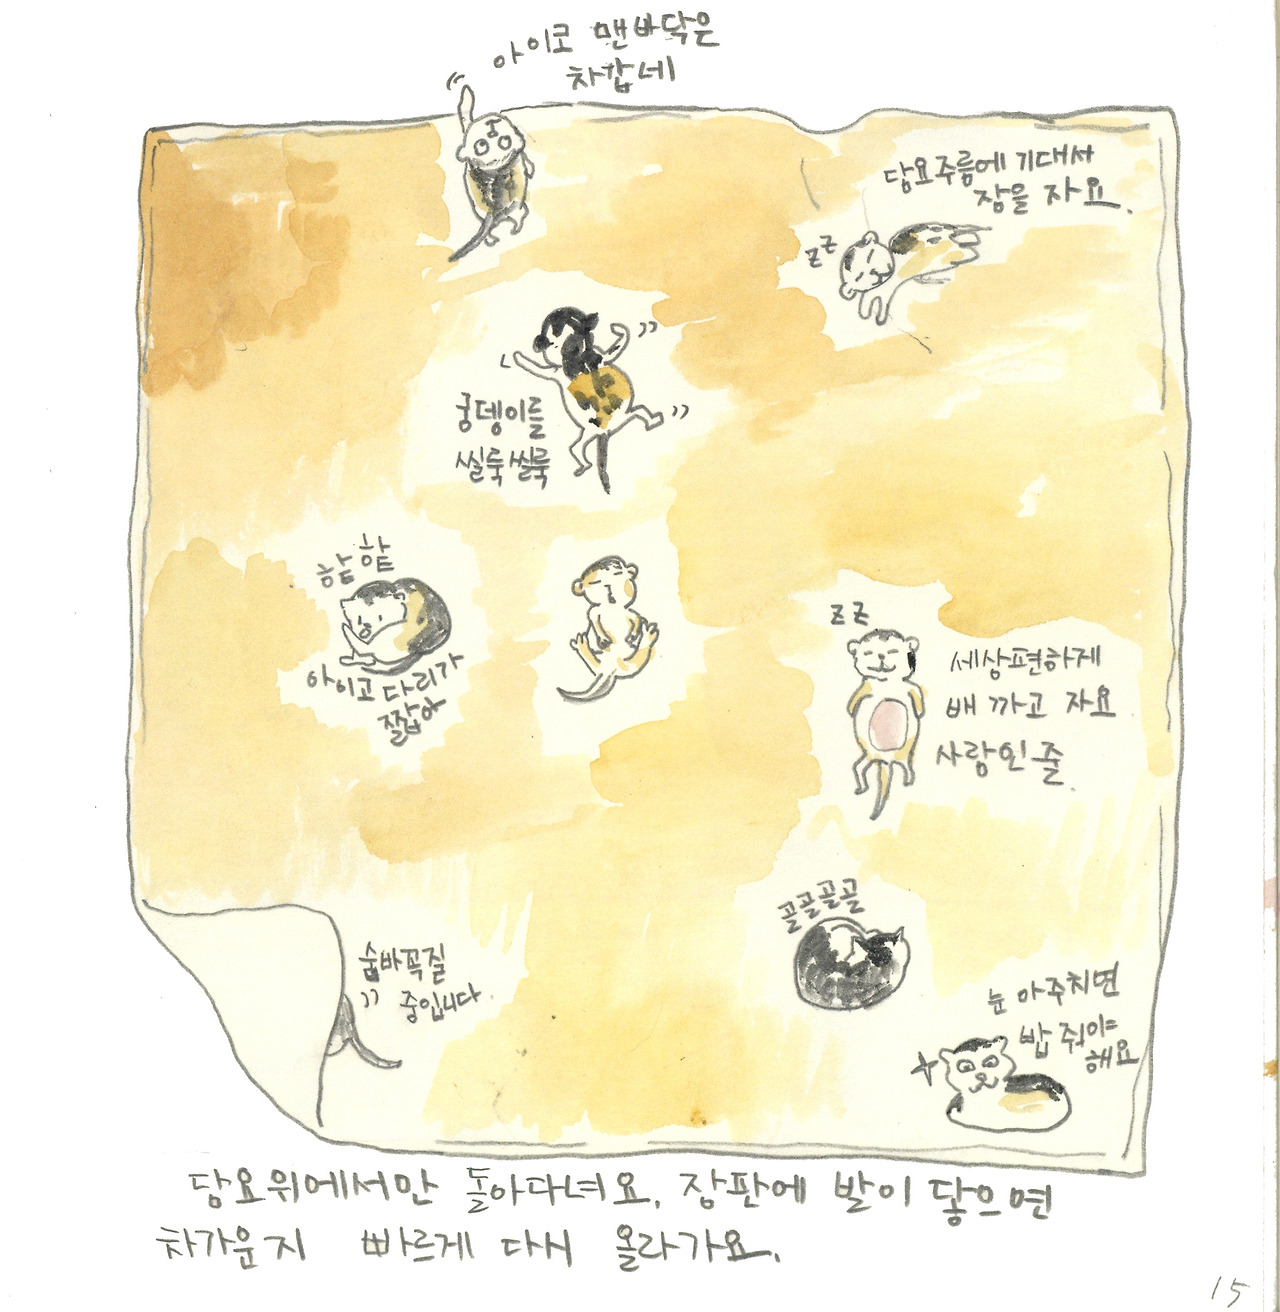 아이코 맨바닥은
차갑네
담요주름에 기대서
잠을 자요.
zz
궁뎅이를
씰룩씰룩
핥핥
아이고 다리가
짧아
zz
세상편하게
배 까고 자요
사람인줄
골골골골
숨바꼭질
중입니다.
눈 마주치면
밥 줘야
해요
담요위에서만 돌아다녀요. 장판에 발이 닿으면
차가운지 빠르게 다시 올라가요.
15